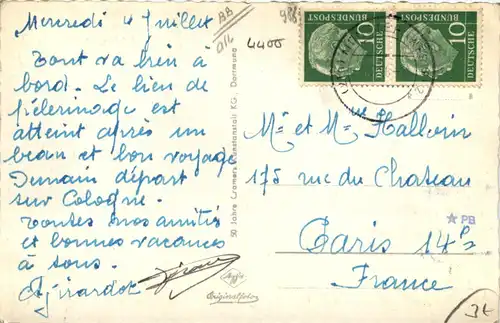 Mercredi 4 Juillet
Tout va bien à
bord. Le lieu de
pélerinage est
atteint après un
beau et bon voyage
Demain départ
sur Cologne.
Toutes nos amitiés
et bonnes vacances
à tous.
Girardot
BB
a14
4400
50 Jahre Cramers Kunstanstalt KG, Dortmund
Originalfoto
10
DEUTSCHE
BUNDESPOST
10
DEUTSCHE
BUNDESPOST
Mr et Mme Hallvin
175 rue du Chateau
★ PB
Paris 14e
France
3€